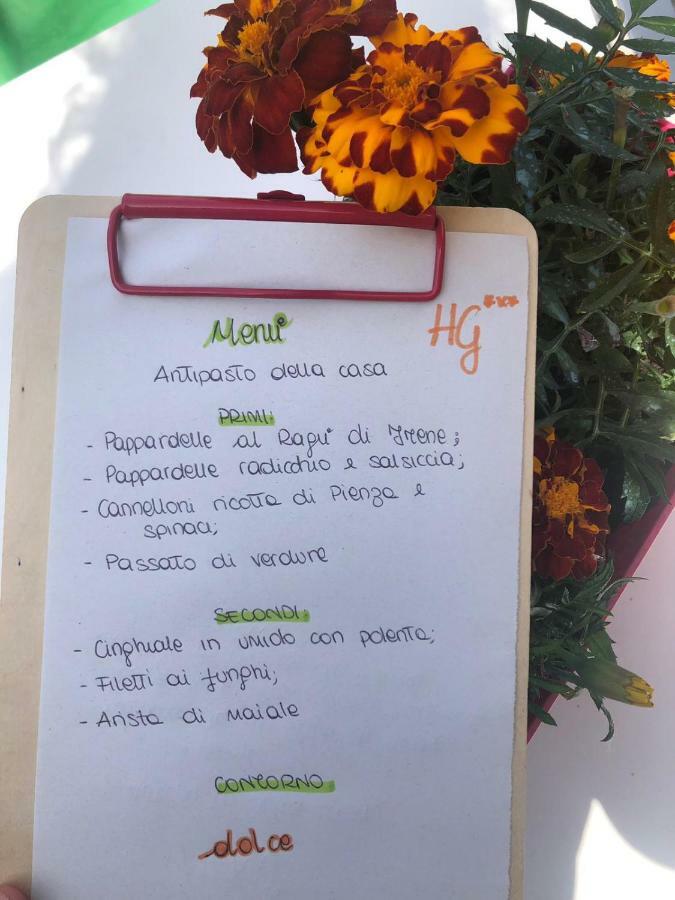 Menù
HG***
Antipasto della casa
PRIMI:
- Pappardelle al Ragù di Irene;
- Pappardelle radicchio e salsiccia;
- Cannelloni ricotta di Pienza e
spinaci;
- Passato di verdure
SECONDI:
- Cinghiale in umido con polenta;
- Filetti ai funghi;
- Arista di maiale
CONTORNO
dolce